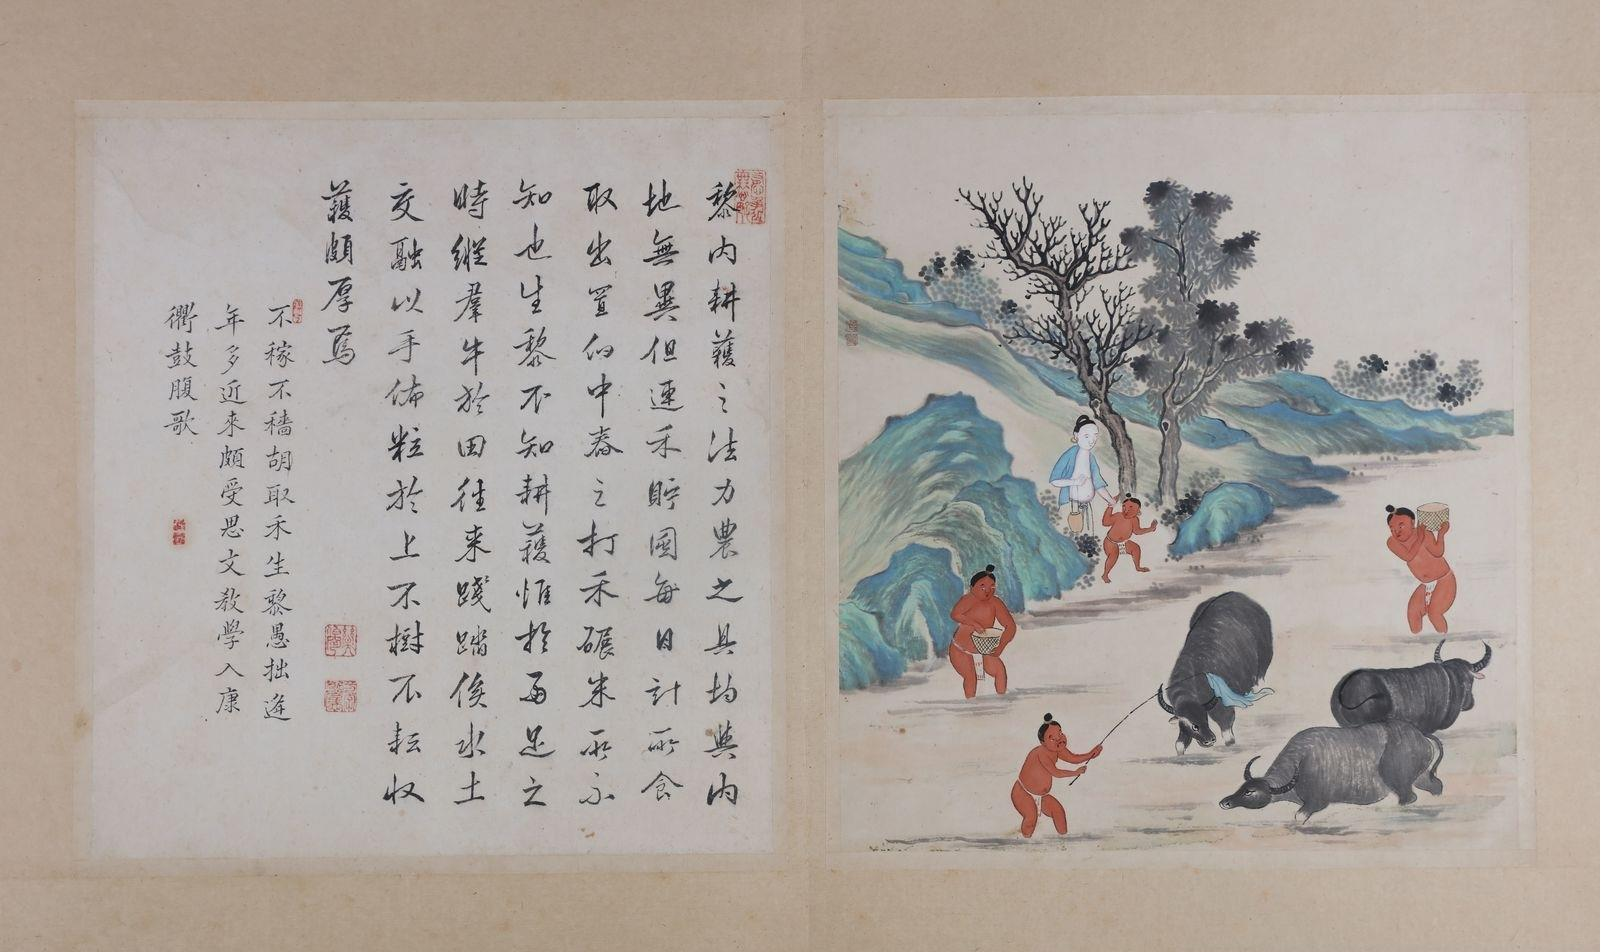 黎內耕穫之法力農之具均與內
地無異但連禾貯囷每日計所食
取出置臼中舂之打禾碾米所不
知也生黎不知耕穫惟於雨足之
時縱羣牛於田往來踐踏俟水土
交融以手佈粒於上不樹不耘收
穫頗厚焉
不稼不穡胡取禾生黎愚拙遂
年多近來頗受思文教學入康
衢鼓腹歌